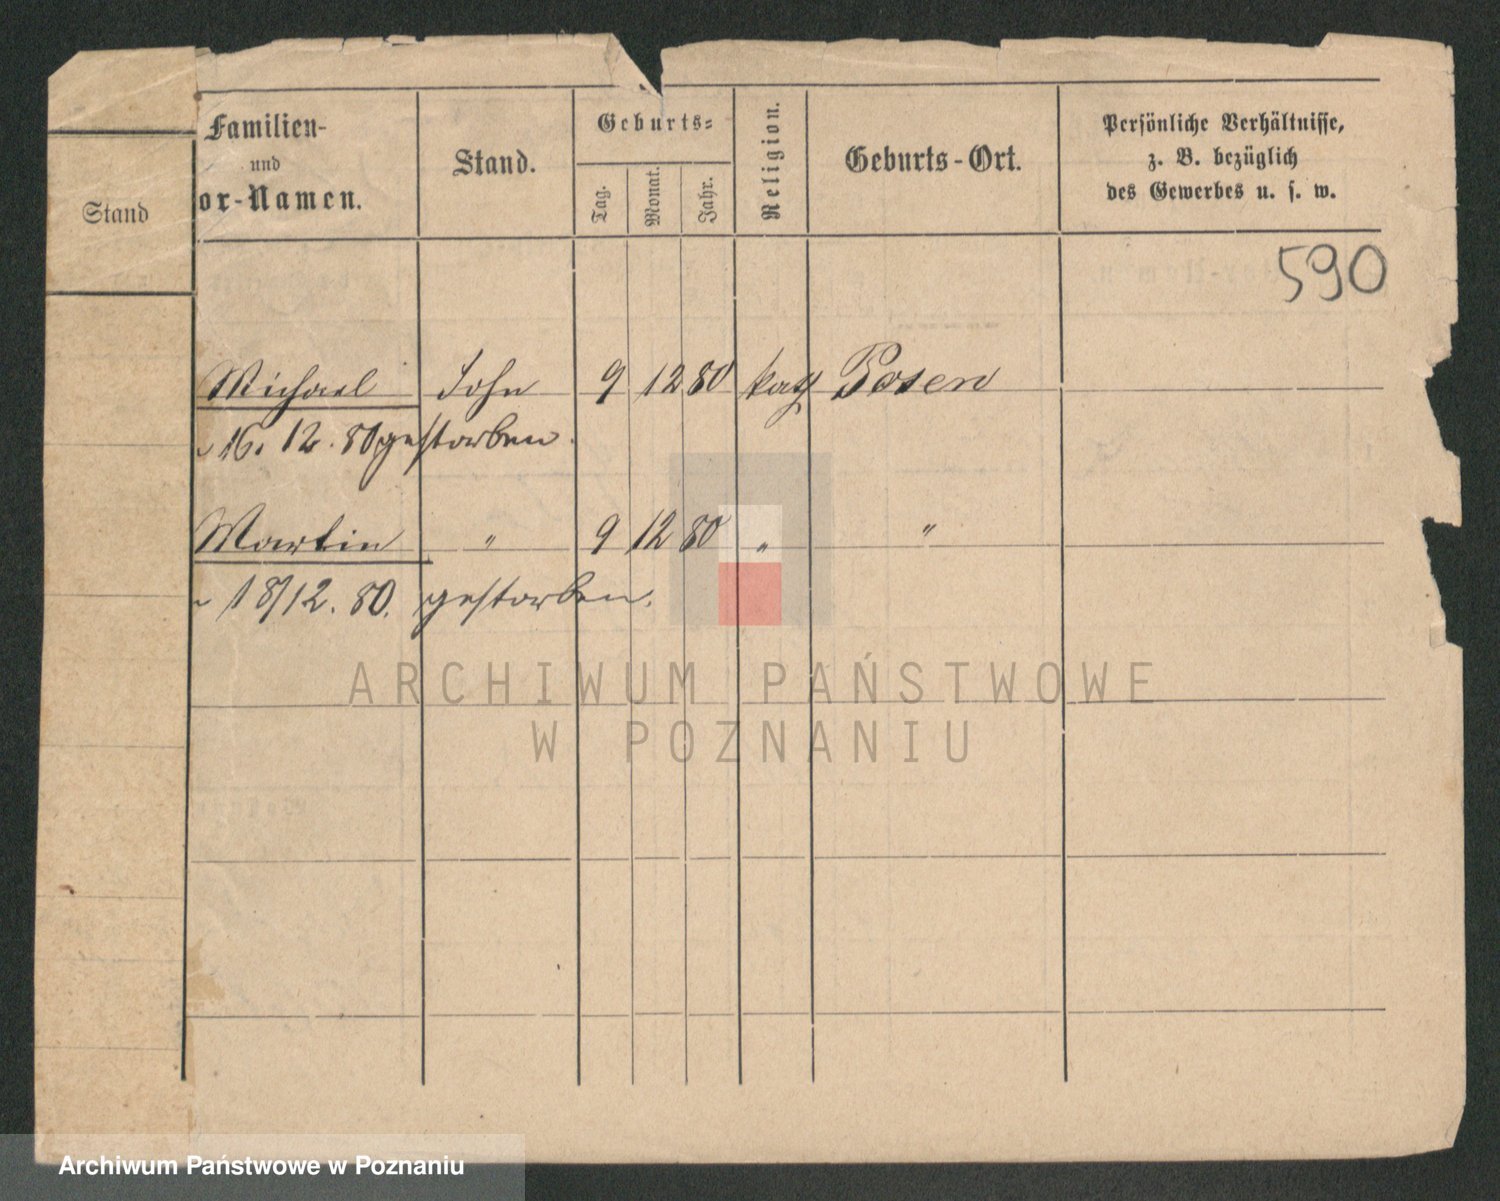 Stand
Familien-
und
or-Namen.
Stand.
Geburts-
Tag.
Monat.
Jahr.
Religion.
Geburts-Ort.
Persönliche Verhältnisse,
z. B. bezüglich
des Gewerbes u. s. w.
590
Michael Sohn 9 12 80 kath Posen
16. 12. 80 gestorben.
Martin " 9 12 80 " "
18/12. 80. gestorben.
ARCHIWUM PAŃSTWOWE
W POZNANIU
Archiwum Państwowe w Poznaniu